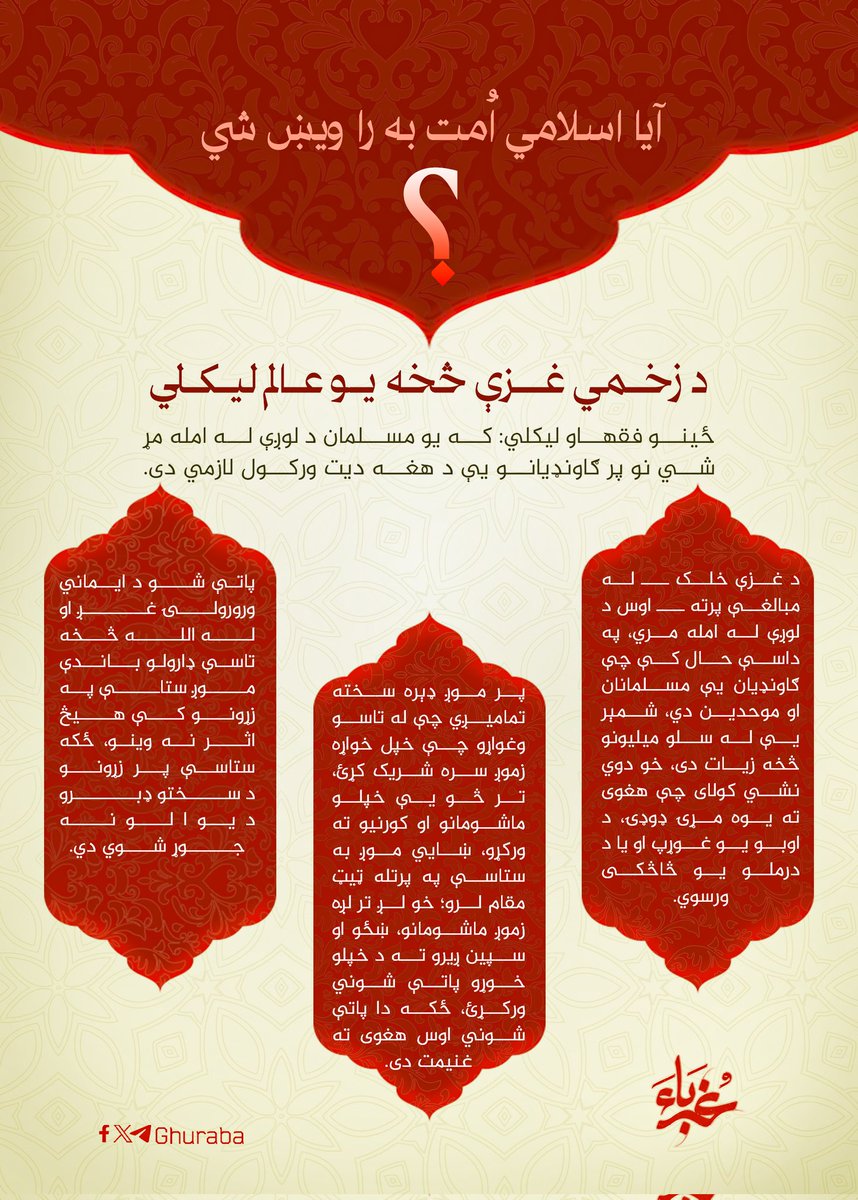 آیا اسلامي اُمت به را ویښ شي
؟
د زخمي غزې څخه یو عالم لیکلي
ځینو فقهاو لیکلي: که یو مسلمان د لوږې له امله مړ
شي نو پر ګاونډیانو یې د هغه دیت ورکول لازمي دی.
د غزې خلک — له
مبالغې پرته — اوس د
لوږې له امله مري، په
داسې حال کې چې
ګاونډیان یې مسلمانان
او موحدین دي، شمېر
یې له سلو میلیونو
څخه زیات دی، خو دوي
نشي کولای چې هغوی
ته یوه مړۍ ډوډۍ، د
اوبو یو غوړپ او یا د
درملو یو څاڅکی
ورسوي.
پر موږ ډېره سخته
تمامیږي چې له تاسو
وغواړو چې خپل خواړه
زموږ سره شریک کړئ،
تر څو یې خپلو
ماشومانو او کورنیو ته
ورکړو، ښايي موږ به
ستاسې په پرتله ټیټ
مقام لرو؛ خو لږ تر لږه
زموږ ماشومانو، ښځو او
سپین ږیرو ته د خپلو
خوړو پاتې شوني
ورکړئ، ځکه دا پاتې
شوني اوس هغوی ته
غنیمت دی.
پاتې شو د ایماني
ورورولۍ غږ او
له الله څخه
تاسې ډارولو باندې
موږ ستاسې په
زړونو کې هیڅ
اثر نه وینو، ځکه
ستاسې پر زړونو
د سختو ډبرو
دیوالونه
جوړ شوي دي.
غُرَباء
Ghuraba